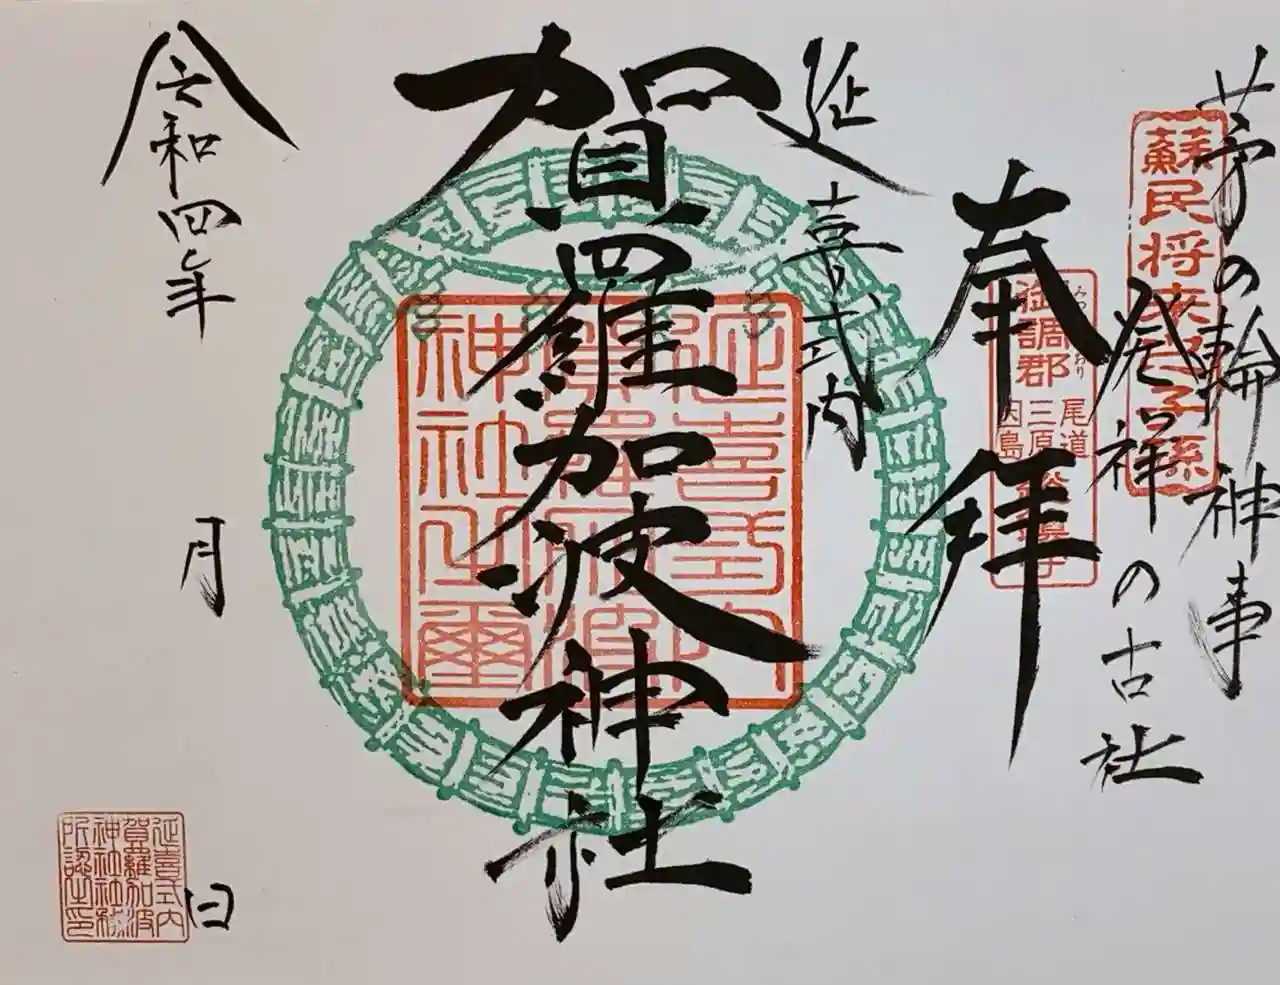 茅の輪神事
発祥の古社
蘇民将来子孫
奉拝
御調郡
みつ
おり
尾道
三原
因島
延喜式内
賀羅加波神社
延喜式内
賀羅加波
神社之璽
令和四年
月
日
延喜式内
賀羅加波
神社社務
所認之印